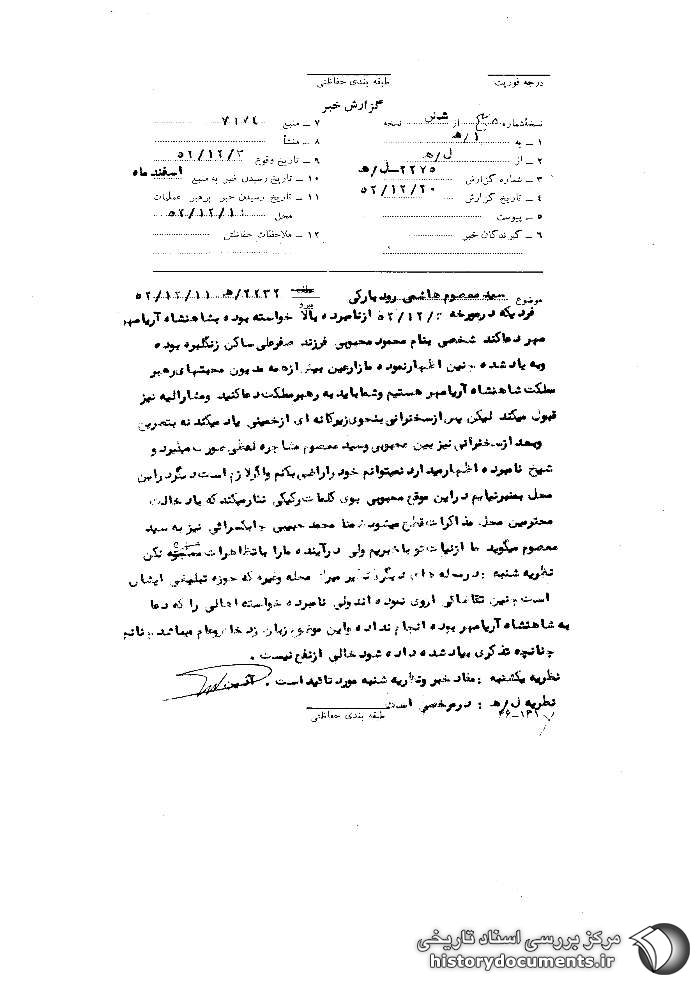 درجه فوریت
طبقه بندی حفاظتی
گزارش خبر
نسخه شماره ۵ از شش نسخه
۱ ـ به ۱/هـ
۲ ـ از ل/هـ
۳ ـ شماره گزارش ۲۲۷۵ـ ل/هـ
۴ ـ تاریخ گزارش ۵۲/۱۲/۲۰
۵ ـ پیوست
۶ ـ گیرندگان خبر
۷ ـ منبع ۷۱۷۴
۸ ـ منشأ
۹ ـ تاریخ وقوع ۵۲/۱۲/۳
۱۰ ـ تاریخ رسیدن خبر به منبع اسفند ماه
۱۱ ـ تاریخ رسیدن خبر برهبر عملیات
محل ۵۲/۱۲/۱
۱۲ ـ ملاحظات حفاظتی
موضوع سید معصوم هاشمی رودبارکی ۲۲۳۲/هـ ۵۲/۱۲/۱۱
فردیکه درمورخه ۵۲/۱۲/ ازنامبرده بالا خواسته بوده بشاهنشاه آریامهر
مهر دعاکند شخصی بنام محمود محبوبی فرزند صفرعلی ساکن زنگبرد بوده
وبه یاد شده چنین اظهارنموده مازارعین بیش ازهمه مدیون محبتهای رهبر
مملکت شاهنشاه آریامهر هستیم وشماباید به رهبرمملکت دعاکنید ومشارالیه نیز
قبول میکند لیکن پس ازسخنرانی بنحوی زیرکانه ای ازخمینی یاد میکند نه بتصریح
وبعد ازسخنرانی نیز بین محبوبی وسید معصوم مشاجره لفظی صورت میگیرد و
شیخ نامبرده اظهارمیدارد نمیتوانم خود راراضی بکنم واگر لازم است دیگردراین
محل بمنبرنیایم دراین موقع محبوبی بوی کلمات رکیکی نثارمیکند که باد خالت
محترمین محل مذاکرات قطع میشود ضمنا محمد حبیبی چابکسرائی نیز به سید
معصوم میگوید ما ازنیات تو باخبریم ولی درآینده مارا باتظاهرات مکن
نظریه شنبه : درمحله های دیگرنظیر میران محله وغیره که حوزه تبلیغی ایشان
است چنین تقاضائی ازوی نموده اندولی نامبرده خواسته اهالی را که دعا
به شاهنشاه آریامهر بوده انجام نداده واین موضوع زبان زد خاص وعام میباشد چنانچه
چنانچه تذکری بیاد شده داده شود خالی ازنفع نیست .
نظریه یکشنبه : مفاد خبر ونظریه شنبه مورد تائید است .
نظریه ل/هـ : درمرخصی است
طبقه بندی حفاظتی
مرکز بررسی اسناد تاریخی
historydocuments.ir